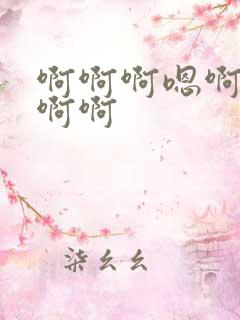 啊啊啊嗯啊
啊啊
柒幺幺